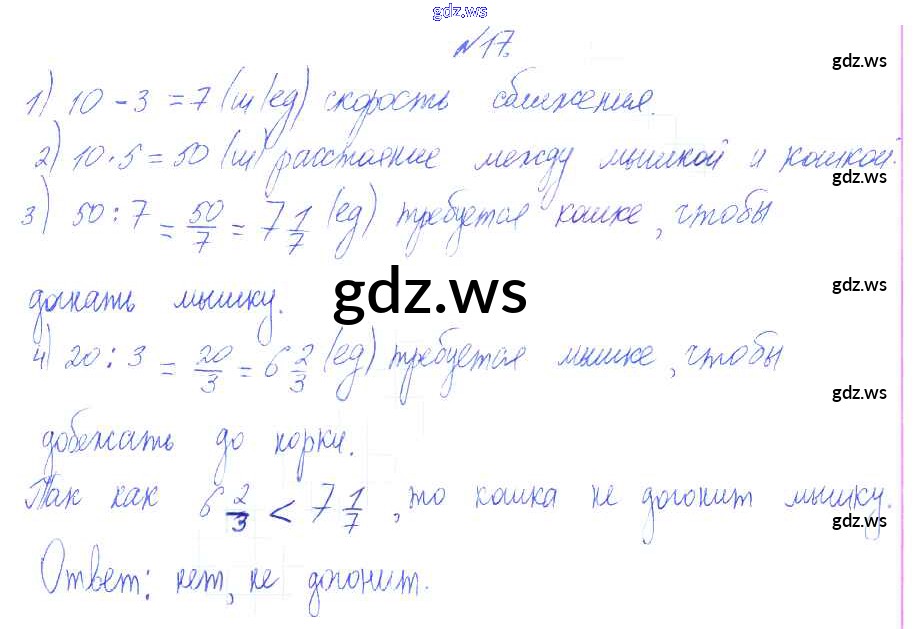 gdz.ws
№17.
gdz.ws
1) 10 - 3 = 7 (ш/ед) скорость сближения.
2) 10 · 5 = 50 (ш) расстояние между мышкой и кошкой.
gdz.ws
3) 50 : 7 = 50/7 = 7 1/7 (ед) требуется кошке, чтобы
gdz.ws
догнать мышку.
gdz.ws
4) 20 : 3 = 20/3 = 6 2/3 (ед) требуется мышке, чтобы
gdz.ws
добежать до норки.
Так как 6 2/3 < 7 1/7, то кошка не догонит мышку.
gdz.ws
Ответ: нет, не догонит.